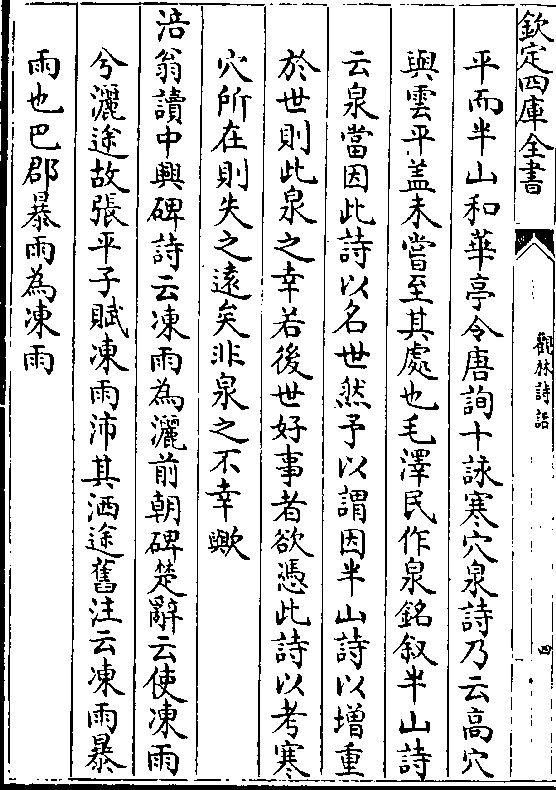 欽定四庫全書
觀林詩話
四
平而半山和華亭令唐詢十詠寒穴泉詩乃云高穴
與雲平盖未嘗至其處也毛澤民作泉銘叙半山詩
云泉當因此詩以名世然予以謂因半山詩以增重
於世則此泉之幸若後世好事者欲憑此詩以考寒
穴所在則失之遠矣非泉之不幸歟
涪翁讀中興碑詩云凍雨為灑前朝碑楚辭云使凍雨
兮灑途故張平子賦凍雨沛其洒途舊注云凍雨暴
雨也巴郡暴雨為凍雨